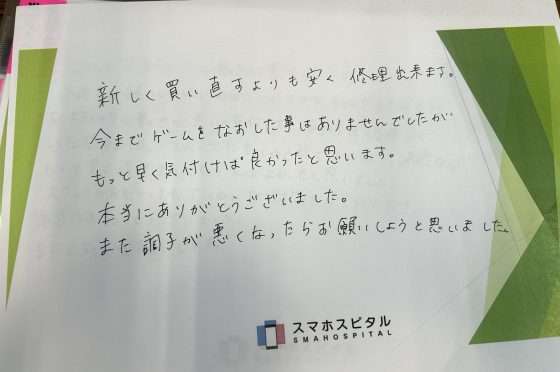 新しく買い直すよりも安く修理出来ます。
今までゲームをなおした事はありませんでしたが
もっと早く気付けば良かったと思います。
本当にありがとうございました。
また調子が悪くなったらお願いしようと思いました。
スマホスピタル
SMAHOSPITAL